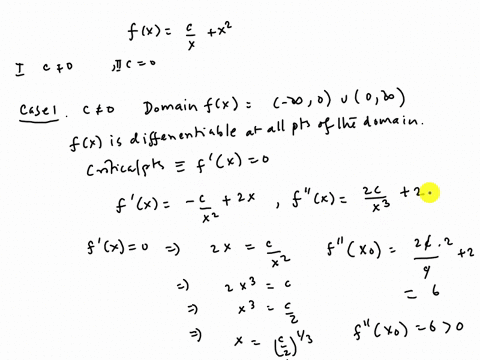 f(x) = c/x + x²
I c ≠ 0 , II c = 0
Case 1. c ≠ 0 Domain f(x) = (-∞, 0) ∪ (0, ∞)
f(x) is differentiable at all pts of the domain.
Critical pts ≡ f'(x) = 0
f'(x) = -c/x² + 2x , f''(x) = 2c/x³ + 2.
f'(x) = 0 ⇒ 2x = c/x² f''(x₀) = 2c̸·2/c̸ + 2
⇒ 2x³ = c = 6
⇒ x³ = c/2
⇒ x = (c/2)^(1/3) f''(x₀) = 6 > 0